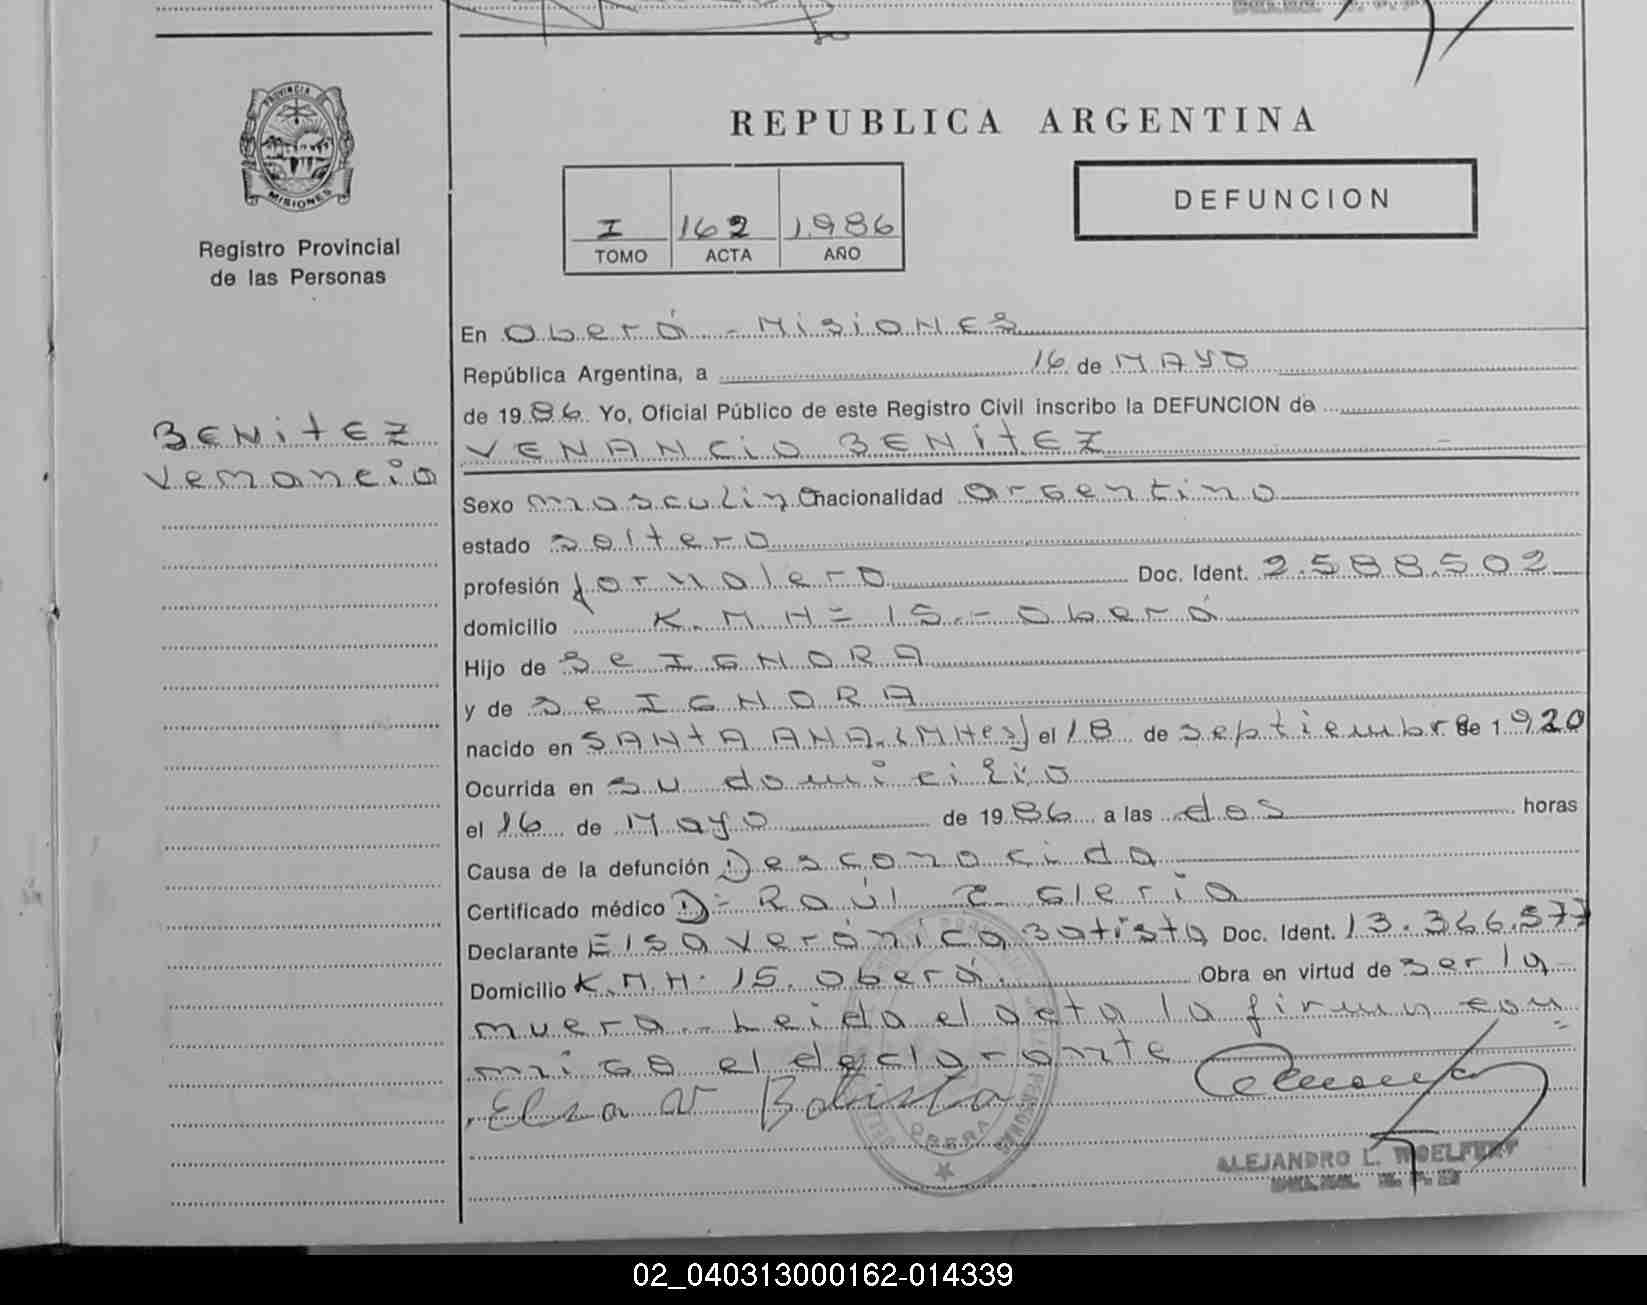 PROVINCIA
MISIONES
Registro Provincial
de las Personas
BENITEZ
Venancio
REPUBLICA ARGENTINA
I 162 1986
TOMO ACTA AÑO
DEFUNCION
En Oberá - MISIONES
República Argentina, a 16 de MAYO
de 1986 Yo, Oficial Público de este Registro Civil inscribo la DEFUNCION de
VENANCIO BENITEZ
Sexo masculino nacionalidad argentino
estado soltero
profesión Jornalero Doc. Ident. 2.588.502
domicilio K.M. Nº 15.- Oberá
Hijo de Se IGNORA
y de Se IGNORA
nacido en SANTA ANA.(MNes) el 18 de septiembre de 1920
Ocurrida en su domicilio
el 16 de Mayo de 1986 a las dos horas
Causa de la defunción Desconocida
Certificado médico D: Raúl
Declarante Elsa Verónica Batista Doc. Ident. 13.366.577
Domicilio K.M.N. 15. Oberá. Obra en virtud de ser la
nuera.- Leida el acta la firman con
migo el declarante
Elsa V Batista
OBERA
ALEJANDRO L. WOELFERT
02_040313000162-014339